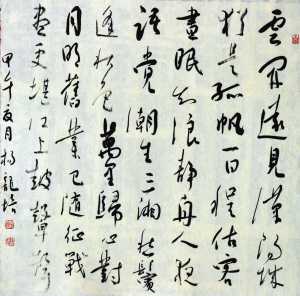 雲開遠見漢陽城
猶是孤帆一日程估客
晝眠知浪靜舟人夜
語覺潮生三湘愁鬢
逢秋色萬里歸心對
月明舊業已隨征戰
盡更堪江上鼓鼙聲
甲午夏月楊龍培